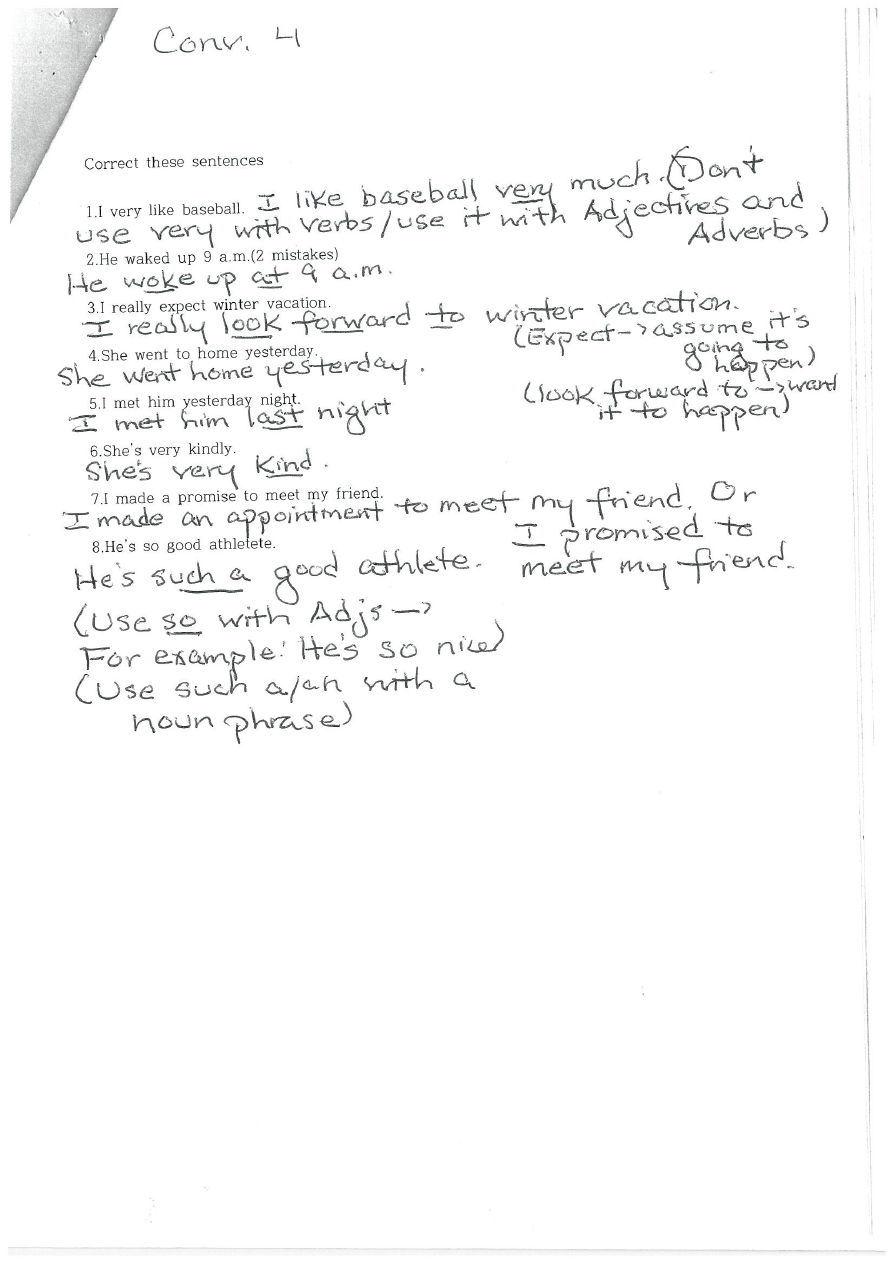 Conv. 4
Correct these sentences
1.I very like baseball. I like baseball very much. (Don't
use very with verbs/use it with Adjectives and
Adverbs)
2.He waked up 9 a.m.(2 mistakes)
He woke up at 9 a.m.
3.I really expect winter vacation.
I really look forward to winter vacation.
(Expect -> assume it's
going to
happen)
4.She went to home yesterday.
She went home yesterday.
(look forward to -> want
it to happen)
5.I met him yesterday night.
I met him last night
6.She's very kindly.
She's very kind.
7.I made a promise to meet my friend.
I made an appointment to meet my friend. Or
I promised to
meet my friend.
8.He's so good athletete.
He's such a good athlete.
(Use so with Adjs ->
For example: He's so nice)
(Use such a/an with a
noun phrase)